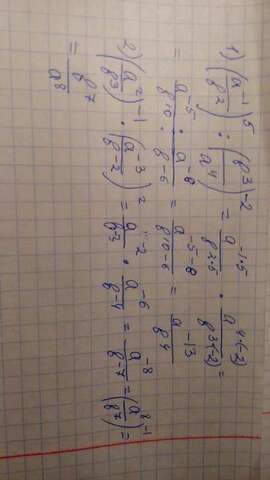 1) (a⁻¹/b²)⁵ : (b³/a⁴)⁻² = a^(-1·5)/b^(2·5) · a^(4·(-2))/b^(3·(-2)) =
= a⁻⁵/b¹⁰ · a⁻⁸/b⁻⁶ = a⁻⁵⁻⁸/b¹⁰⁻⁶ = a⁻¹³/b⁴
2) (a²/b³)⁻¹ · (a⁻³/b⁻²)² = a⁻²/b⁻³ · a⁻⁶/b⁻⁴ = a⁻⁸/b⁻⁷ = (a⁸/b⁷)⁻¹ =
= b⁷/a⁸